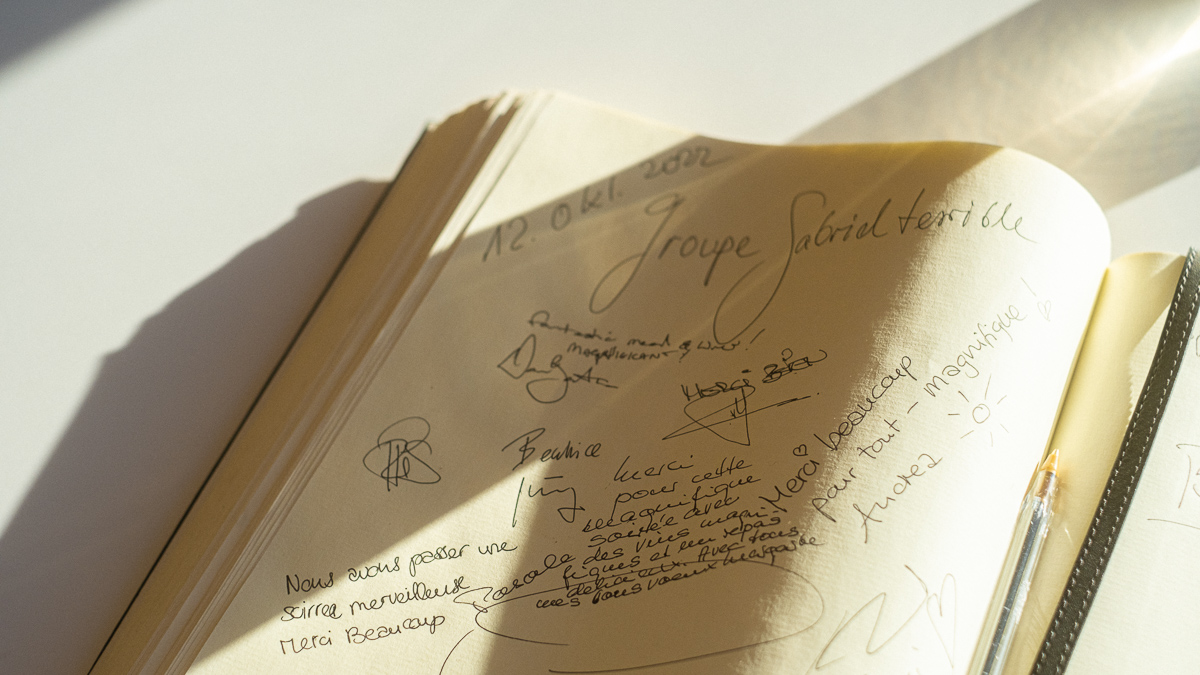 12. Okt. 2022
Groupe Gabriel terrible
Fantastic meal & wine!
MAGNIFICANT
Merci Bien
Beatrice
Jürg
Merci
pour cette
magnifique
soirée avec
des vins magni-
fiques et un repas
délicieux. Avec tous
mes bons voeux
Merci beaucoup
pour tout - magnifique!
Nous avons passer une
soirée merveilleuse
Merci Beaucoup